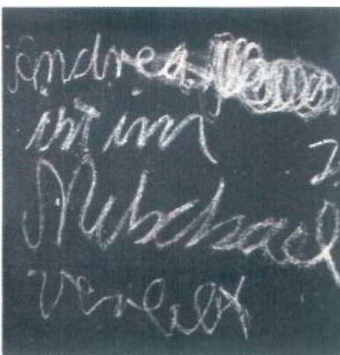 Andrea
ist im
Mebchael
verliebt